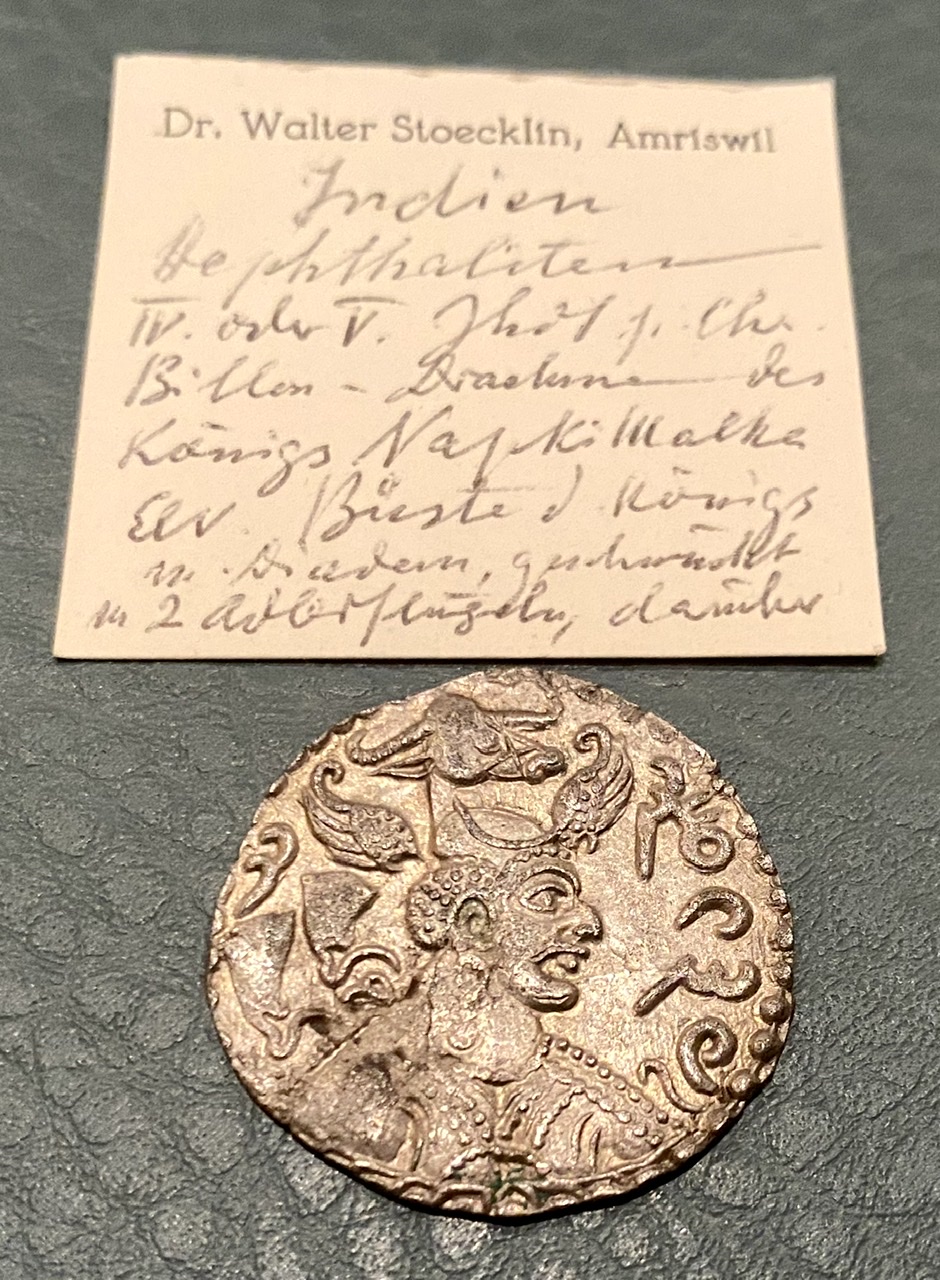 Dr. Walter Stoecklin, Amriswil
Indien
Hephthaliten
IV. oder V. Jhdt p. Chr.
Billon - Drachme des
Königs Napki Malka
Av. Büste d Königs
m. Diadem, geschmückt
m 2 Adlerflügeln, darüber